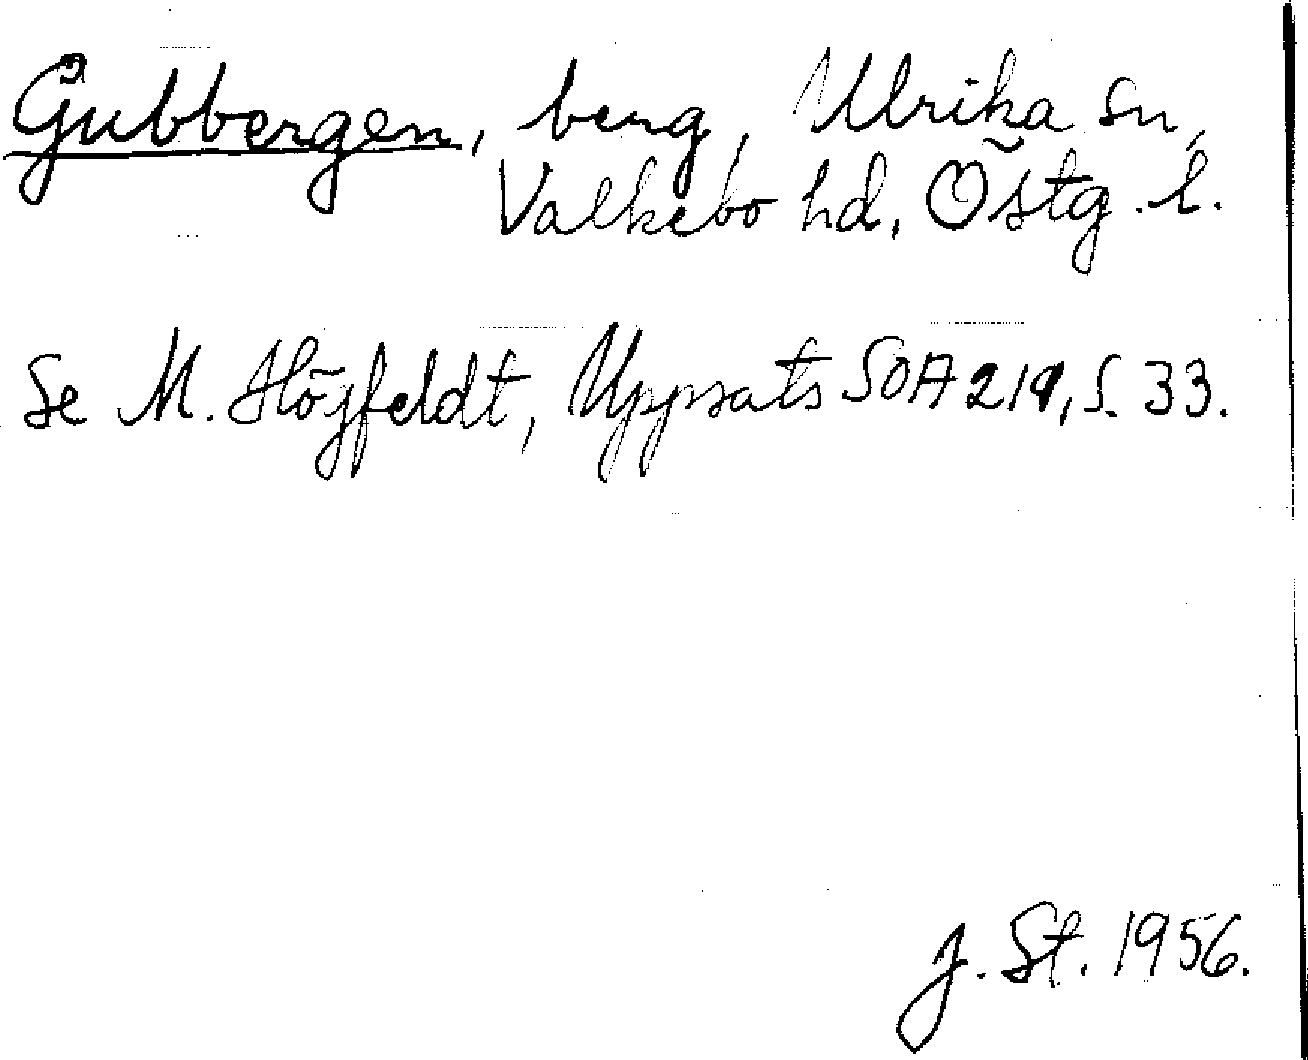 Gubbergen, berg, Ulrika sn,
Valkebo hd, Östg. l.
Se M. Högfeldt, Uppsats SOA 219, s. 33.
J. St. 1956.